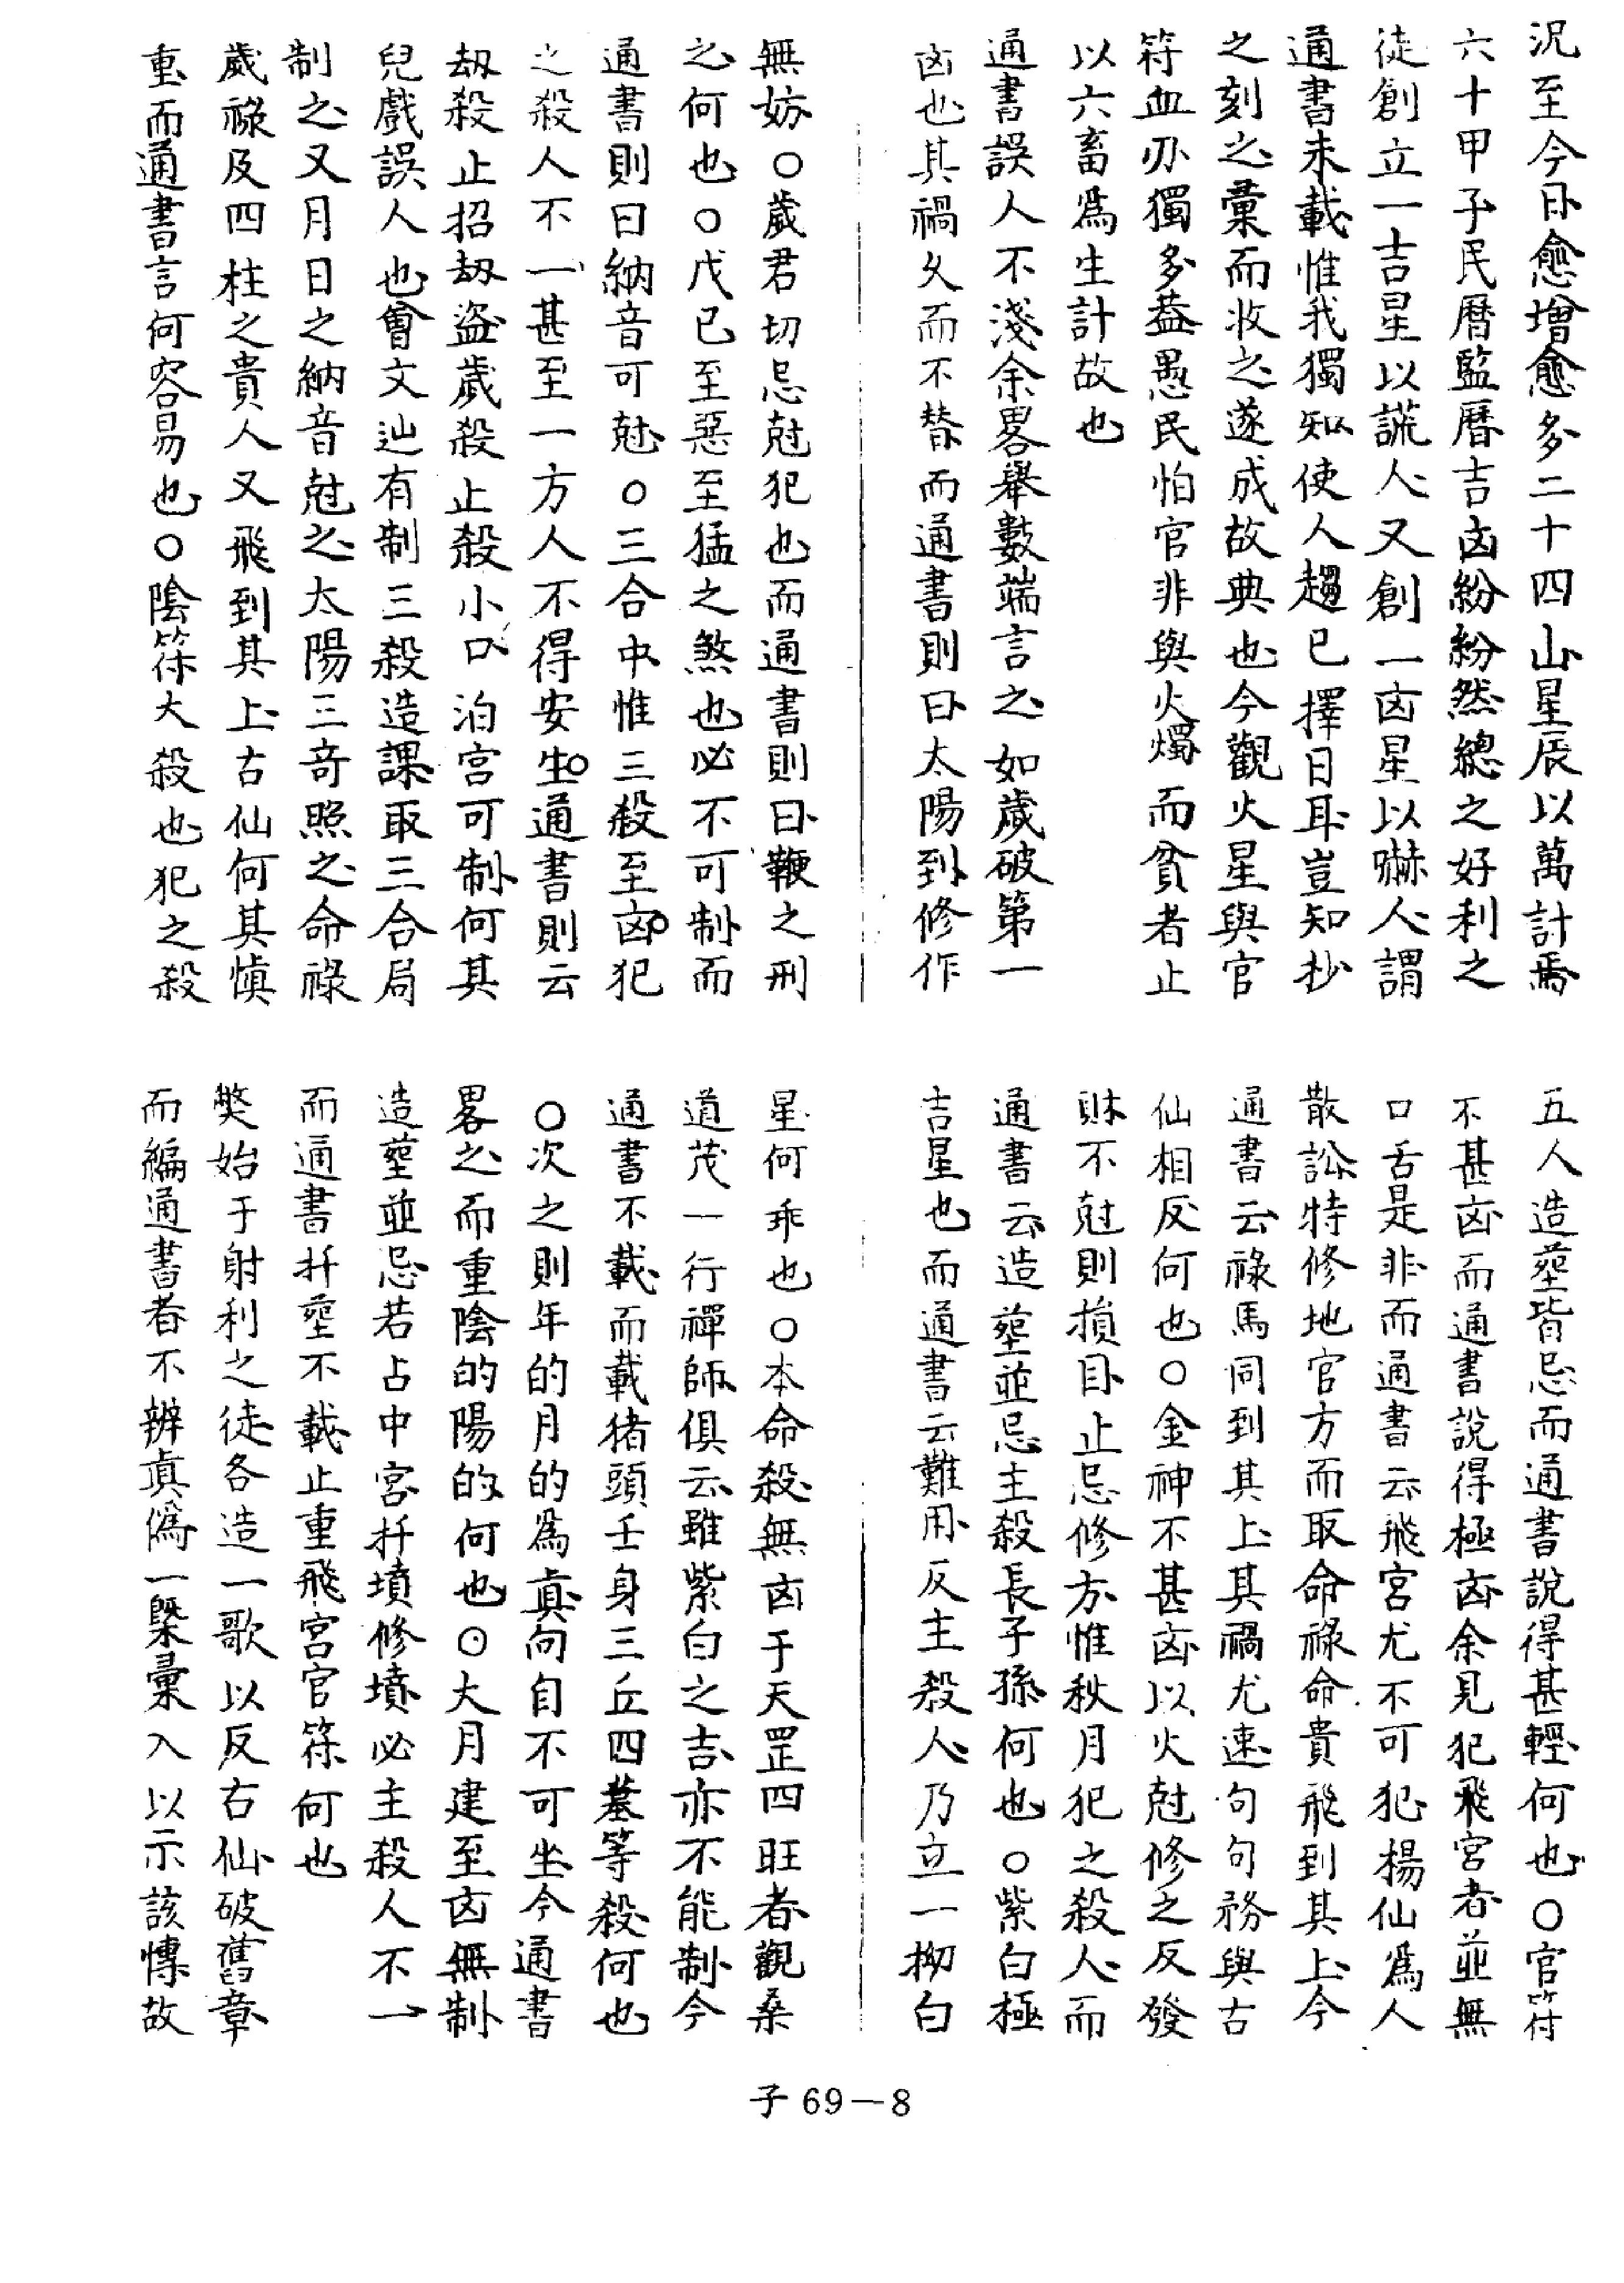 況至今日愈增愈多二十四山星辰以萬計焉
六十甲子民曆監曆吉凶紛紛然總之好利之
徒創立一吉星以謊人又創一凶星以嚇人謂
通書未載惟我獨知使人趨已擇日耳豈知抄
之刻之彙而收之遂成故典也今觀火星與官
符血刃獨多葢愚民怕官非與火燭而貧者止
以六畜爲生計故也
通書誤人不淺余畧舉數端言之如歲破第一
凶也其禍久而不替而通書則曰太陽到修作
無妨○歲君切忌尅犯也而通書則曰鞭之刑
之何也○戊已至惡至猛之煞也必不可制而
通書則曰納音可尅○三合中惟三殺至凶犯
之殺人不一甚至一方人不得安生○通書則云
刼殺止招刼盜歲殺止殺小口泊宮可制何其
兒戲誤人也曾文辿有制三殺造課取三合局
制之又月日之納音尅之太陽三奇照之命祿
歲祿及四柱之貴人又飛到其上古仙何其慎
重而通書言何容易也○陰符大殺也犯之殺
五人造塟皆忌而通書說得甚輕何也○官符
不甚凶而通書說得極凶余見犯飛宮者並無
口舌是非而通書云飛宮尤不可犯楊仙爲人
散訟特修地官方而取命祿命貴飛到其上今
通書云祿馬同到其上其禍尤速句句務與古
仙相反何也○金神不甚凶以火尅修之反發
財不尅則損目止忌修方惟秋月犯之殺人而
通書云造塟並忌主殺長子孫何也○紫白極
吉星也而通書云難用反主殺人乃立一拗白
星何乖也○本命殺無凶于天罡四旺者觀桑
道茂一行禪師俱云雖紫白之吉亦不能制今
通書不載而載猪頭壬身三丘四墓等殺何也
○次之則年的月的爲眞向自不可坐今通書
畧之而重陰的陽的何也○大月建至凶無制
造塟並忌若占中宮扦墳修墳必主殺人不一
而通書扦塟不載止重飛宮官符何也
獘始于射利之徒各造一歌以反右仙破舊章
而編通書者不辨眞僞一槩彙入以示該愽故
子69—8